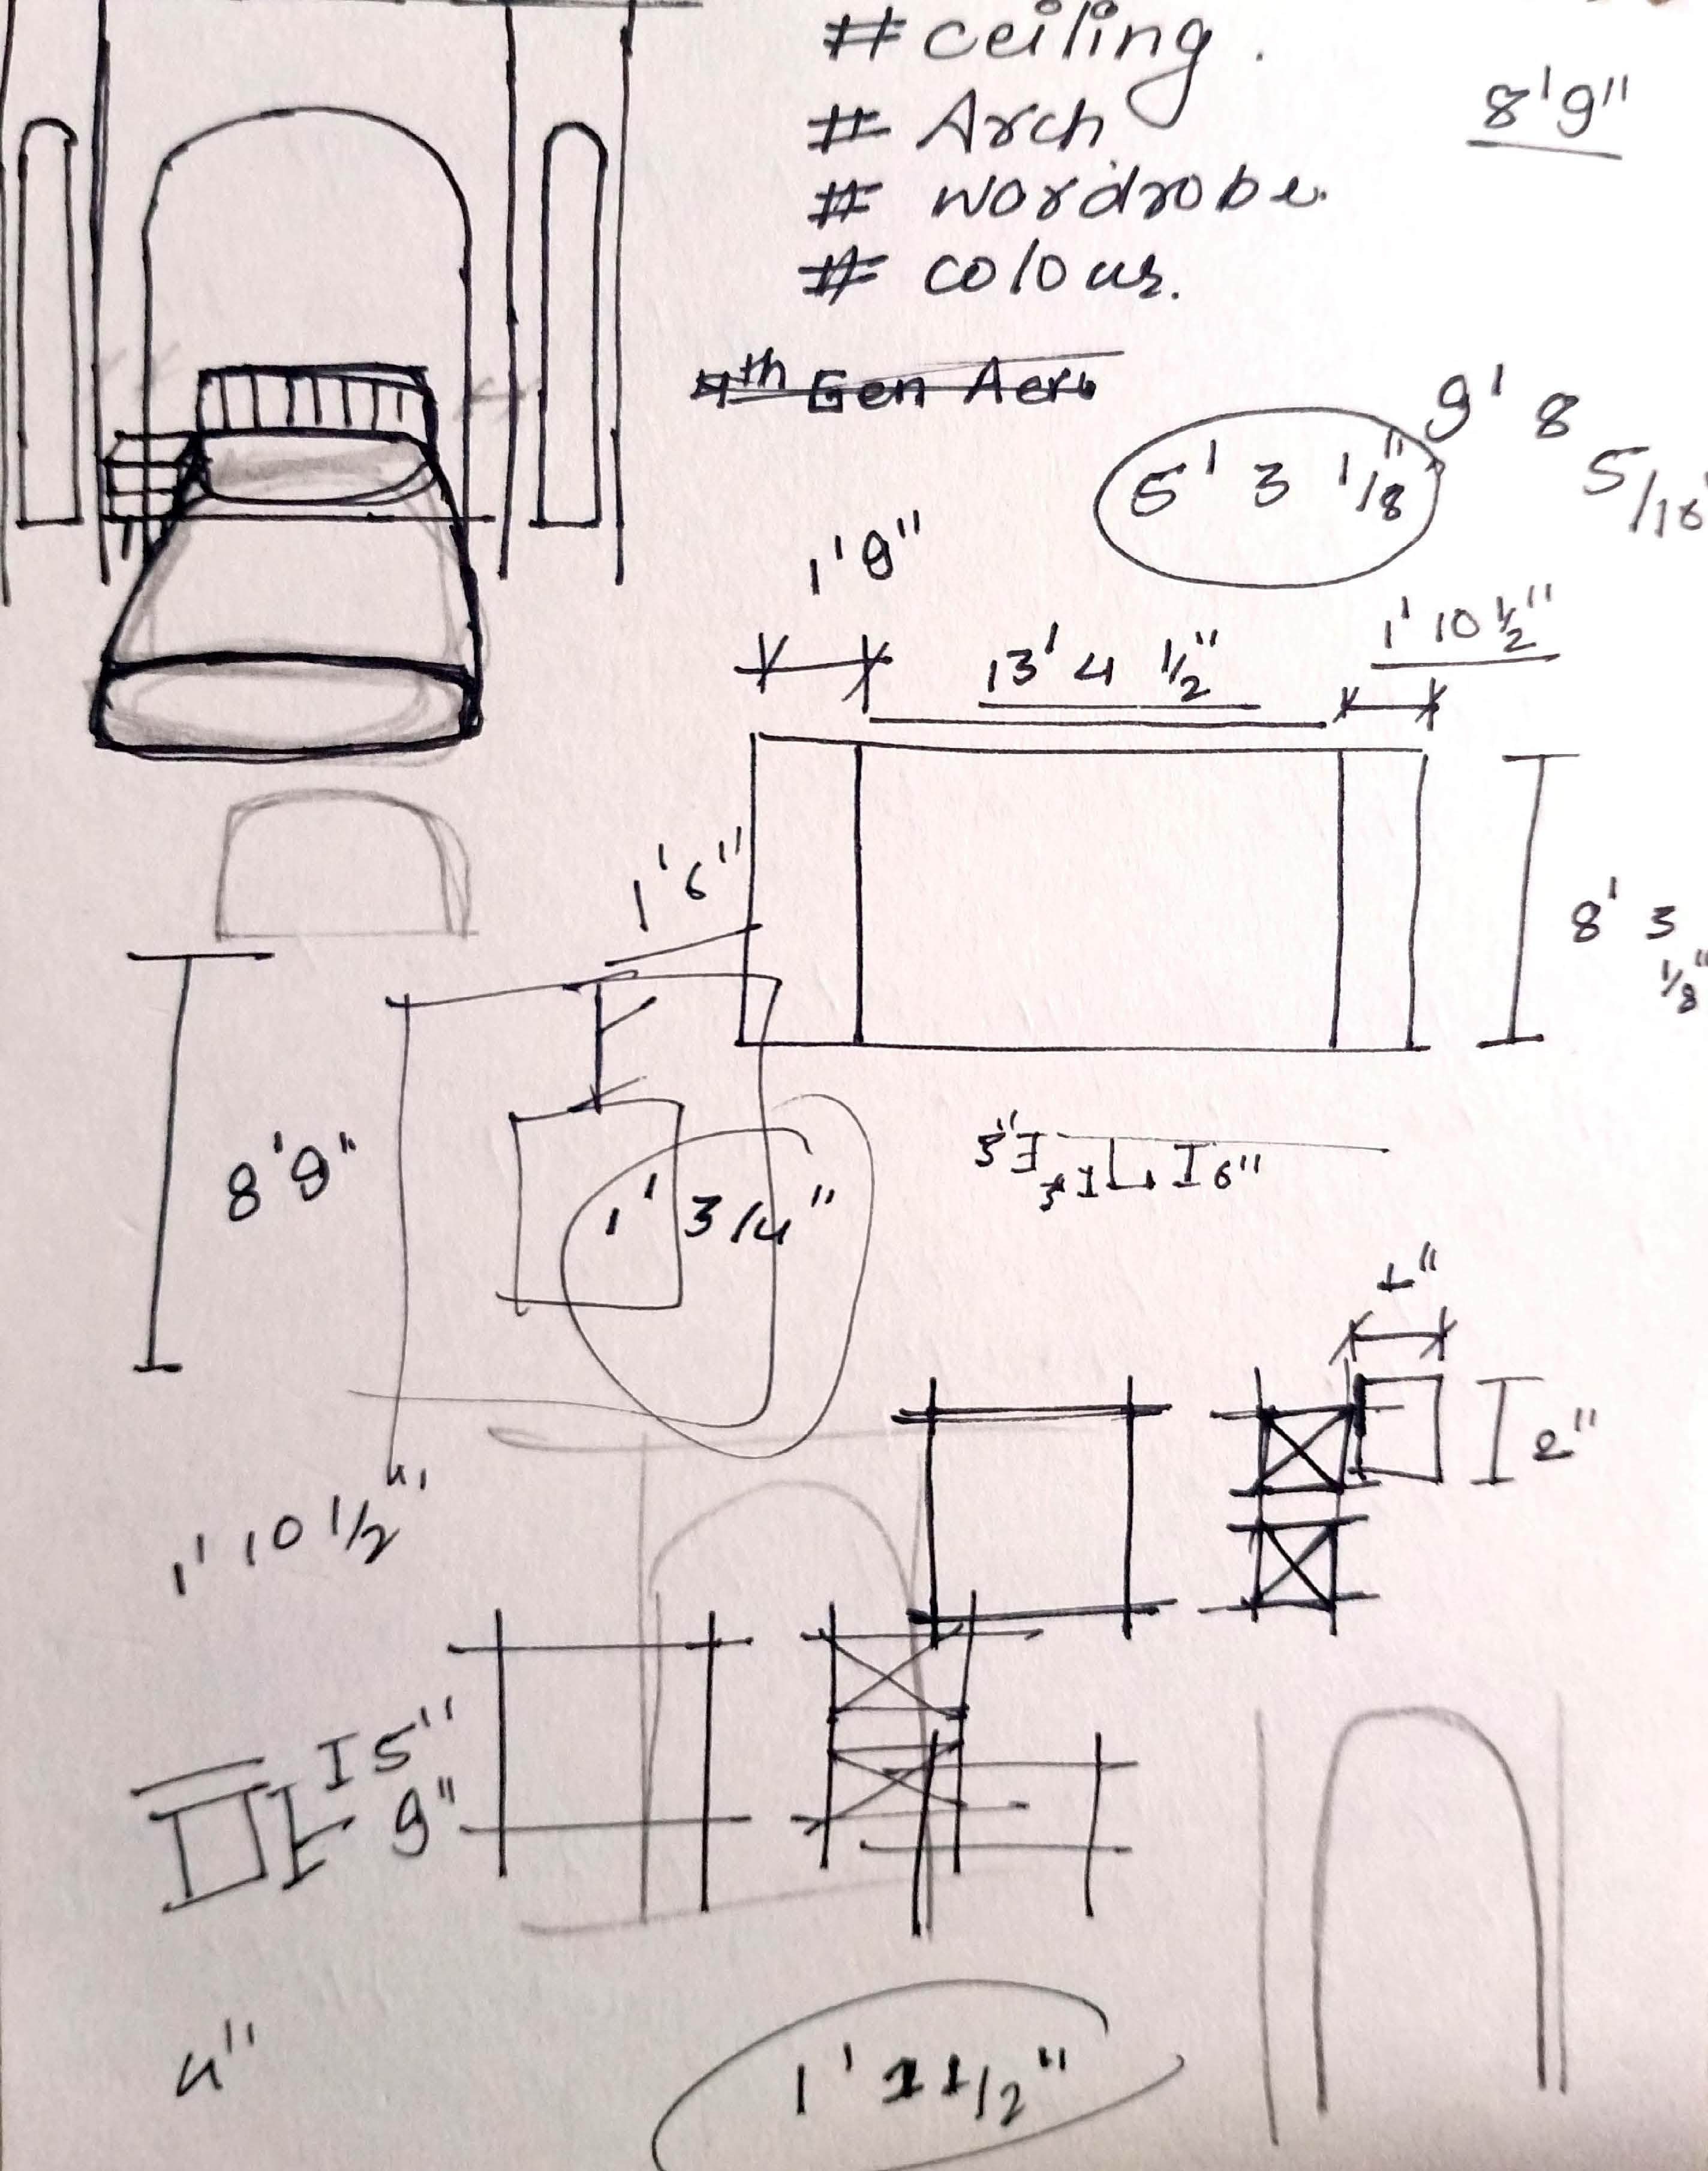 # ceiling.
8'9"
# Arch
# wordrobe.
# colour.
4th Gen Aero
9' 8 5/16"
5' 3 1/8"
1'9"
13' 4 1/2"
1' 10 1/2"
1'6"
8' 3 1/8"
8'9"
1' 3/4"
3"
6"
1"
2"
1' 10 1/2"
5"
9"
4"
1' 1 1/2"